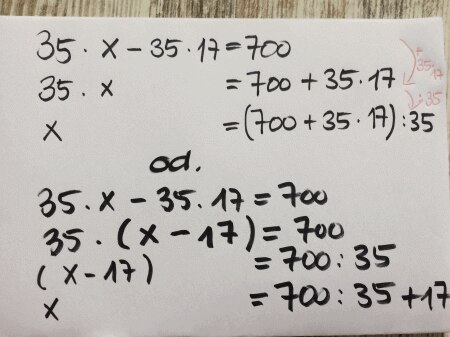 35 · x - 35 · 17 = 700
35 · x = 700 + 35 · 17
x = (700 + 35 · 17) : 35
+35·17
: 35
od.
35 · x - 35 · 17 = 700
35 · (x - 17) = 700
(x - 17) = 700 : 35
x = 700 : 35 + 17